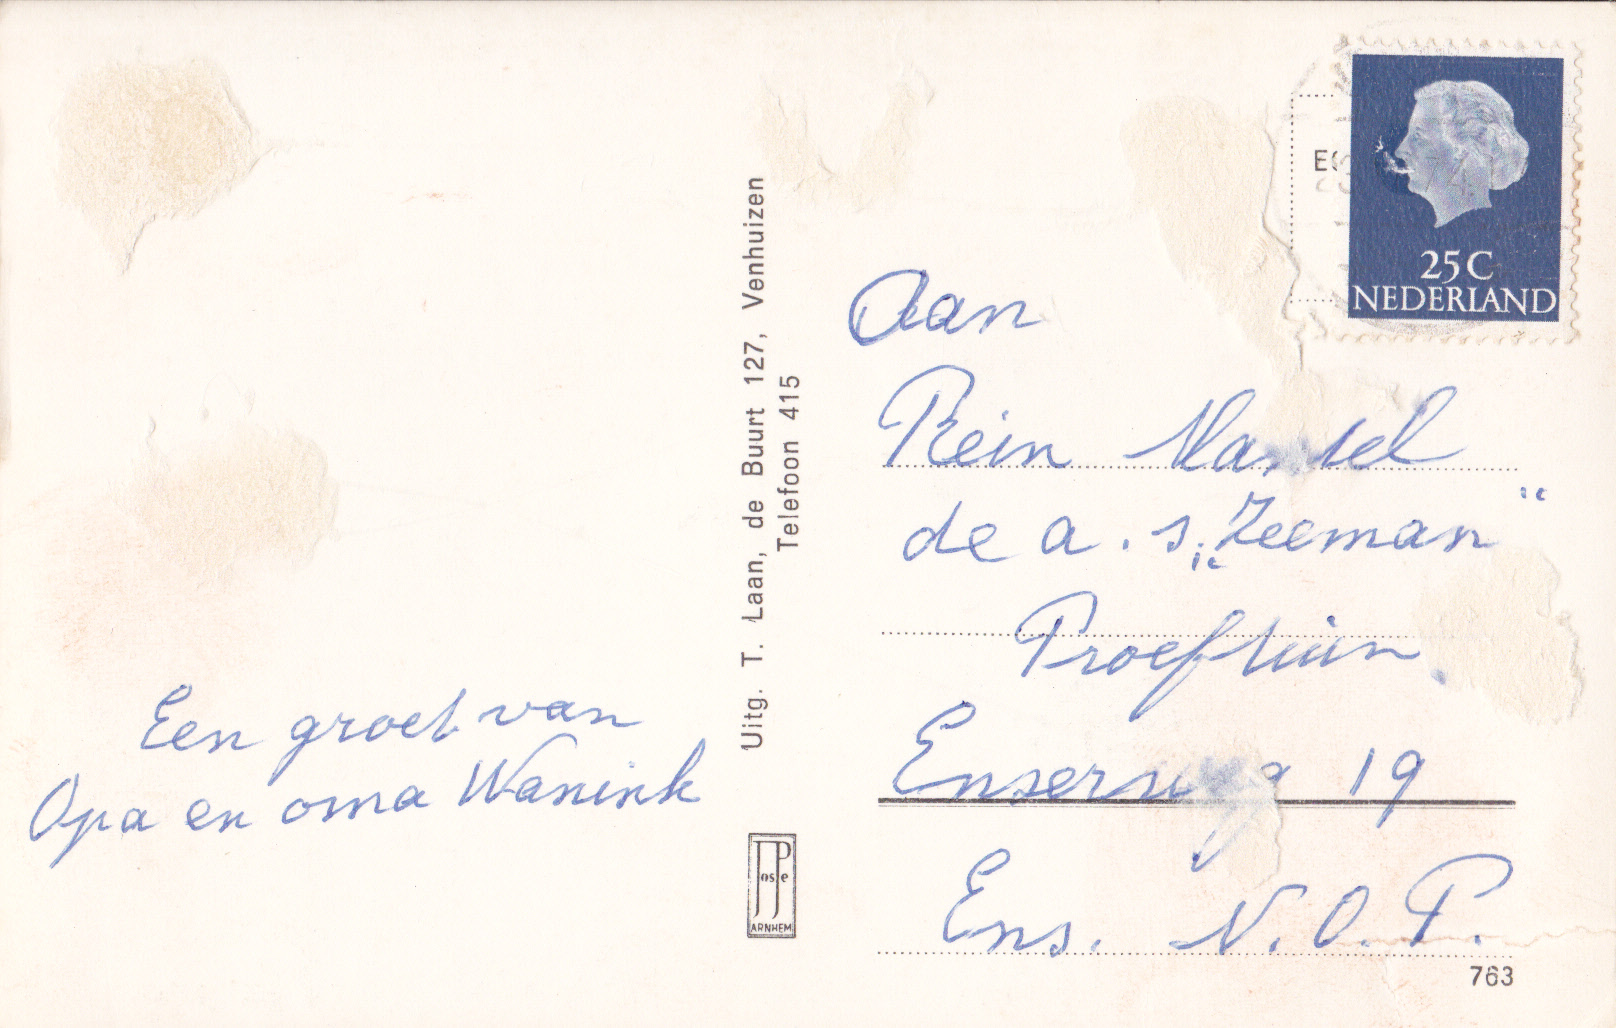 Een groet van
Opa en oma Wanink
Uitg. T. Laan, de Buurt 127, Venhuizen
Telefoon 415
JosPé
ARNHEM
25 C
NEDERLAND
Aan
Rein
de a. s. „Zeeman“
Proeftuin
Enserweg 19
Ens. N. O. P.
763